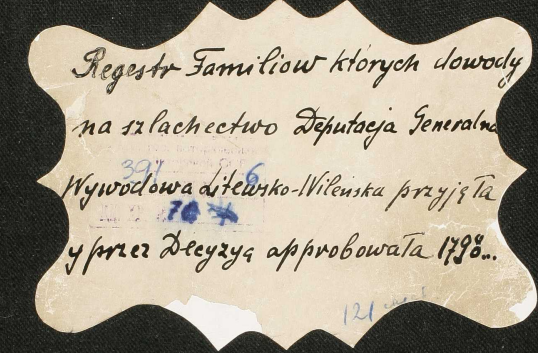 Regestr Familiow których dowody
na szlachectwo Deputacja Generalna
391 6
Wywodowa Litewsko-Wileńska przyjęła
y przez Decyzyą approbowała 179
121